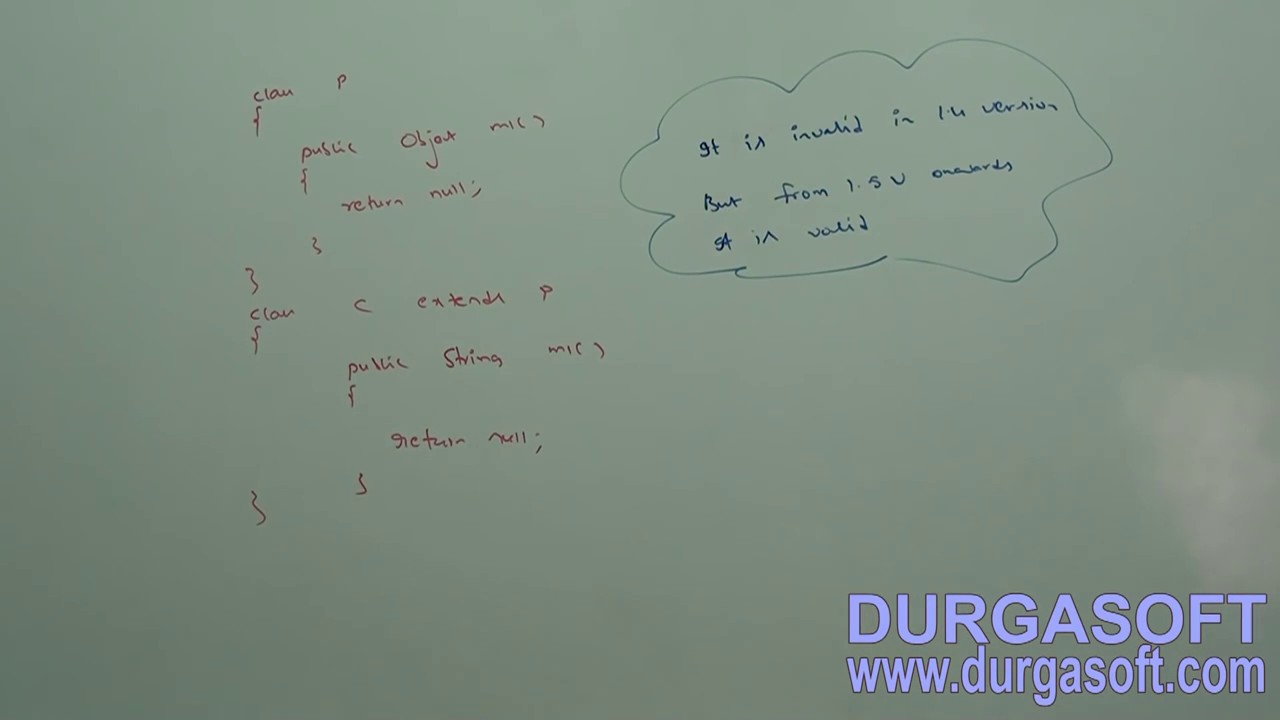 class P
{
public Object m1()
{
return null;
}
}
class C extends P
{
public String m1()
{
return null;
}
}
It is invalid in 1.4 version
But from 1.5 V onwards
it is valid
DURGASOFT
www.durgasoft.com